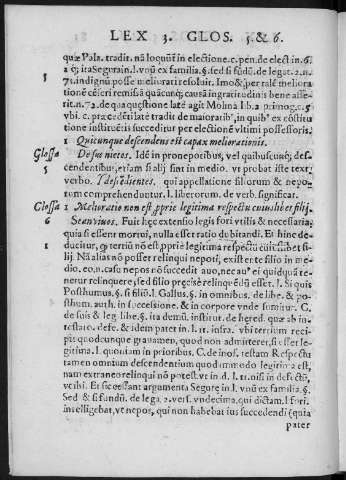 LEX 3. GLOS. 5 & 6.
quæ Pala. tradit. nā loquūt̄ in electione. c. pen. de elect in. 6.
2 q; ita Segura in. l. voū ex familia. §. sed si fūdū. de legat. 2. n.
5 71. indignū posse meliorari resoluit. Imo & per talē meliora
tionē cēseri remissā quācunq; causā ingratitudinis bene asse-
rit. n. 72. de qua quęstione latè agit Molina li b. 2 primog. c. 5
vbi. c. præcedēti latè tradit de maioratib', in quib' ex cōstitu
tione instituētis succeditur per electionē vltimi possessoris.
1 Quicunque descendens est capax meliorationis.
Glossa De sus nietos. Idē in pronepotibus, vel quibuscunq; des-
5 cendentibus, etiam si alij sint in medio. vt probat iste text9
verbo. Y descēdientes. qui appellatione filiorum & nepo-
rum comprehenduntur. l. liberorum. de verb. significat.
Glossa 1 Melioratio non est pprie legitima respectu cuiuslibet filij.
6 Sean viuos. Fuit hęc extensio legis fori vtilis & necessaria,
quia si essent mortui, nulla esset ratio dubitandi. Et hinc de-
1 ducitur, q; tertiū nō est ꝓpriè legitima respectu cuiuslibet fi-
lij. Nā alias nō posset relinqui nepoti, existente filio in me-
dio. eo, n. casu nepos nō succedit auo, nec au9 ei quidquā te-
netur relinquere, sed filio præcisè relinquēdū esset. l. Si quis
Posthumus. §. si filiū. l. Gallus. §. in omnibus. de libe. & po-
sthum. auth. in successione. & in corpore vnde sumitur. C.
de suis & leg. libe. §. ita demū. institut. de hęred. quæ ab in-
testato. defe. & idem patet in. l. 11. infra. vbi tertium reci-
pis quodcunque grauamen, quod non admitteret, si esset le-
gitima. l. quoniam in prioribus. C. de inof. testam Respectu
tamen omnium descendentium quodammodo legitima est,
nam extraneo relinqui nō potest. vt in d. l. 11. nisi in defectū,
vt ibi. Et sic cessant argumenta Segure in l. voū ex familia §.
Sed & si fundū. de lega 2. vers. vndecima. qui dictam. l. fori.
intelligebat, vt nepos, qui non habebat ius succedendi (quia
pater